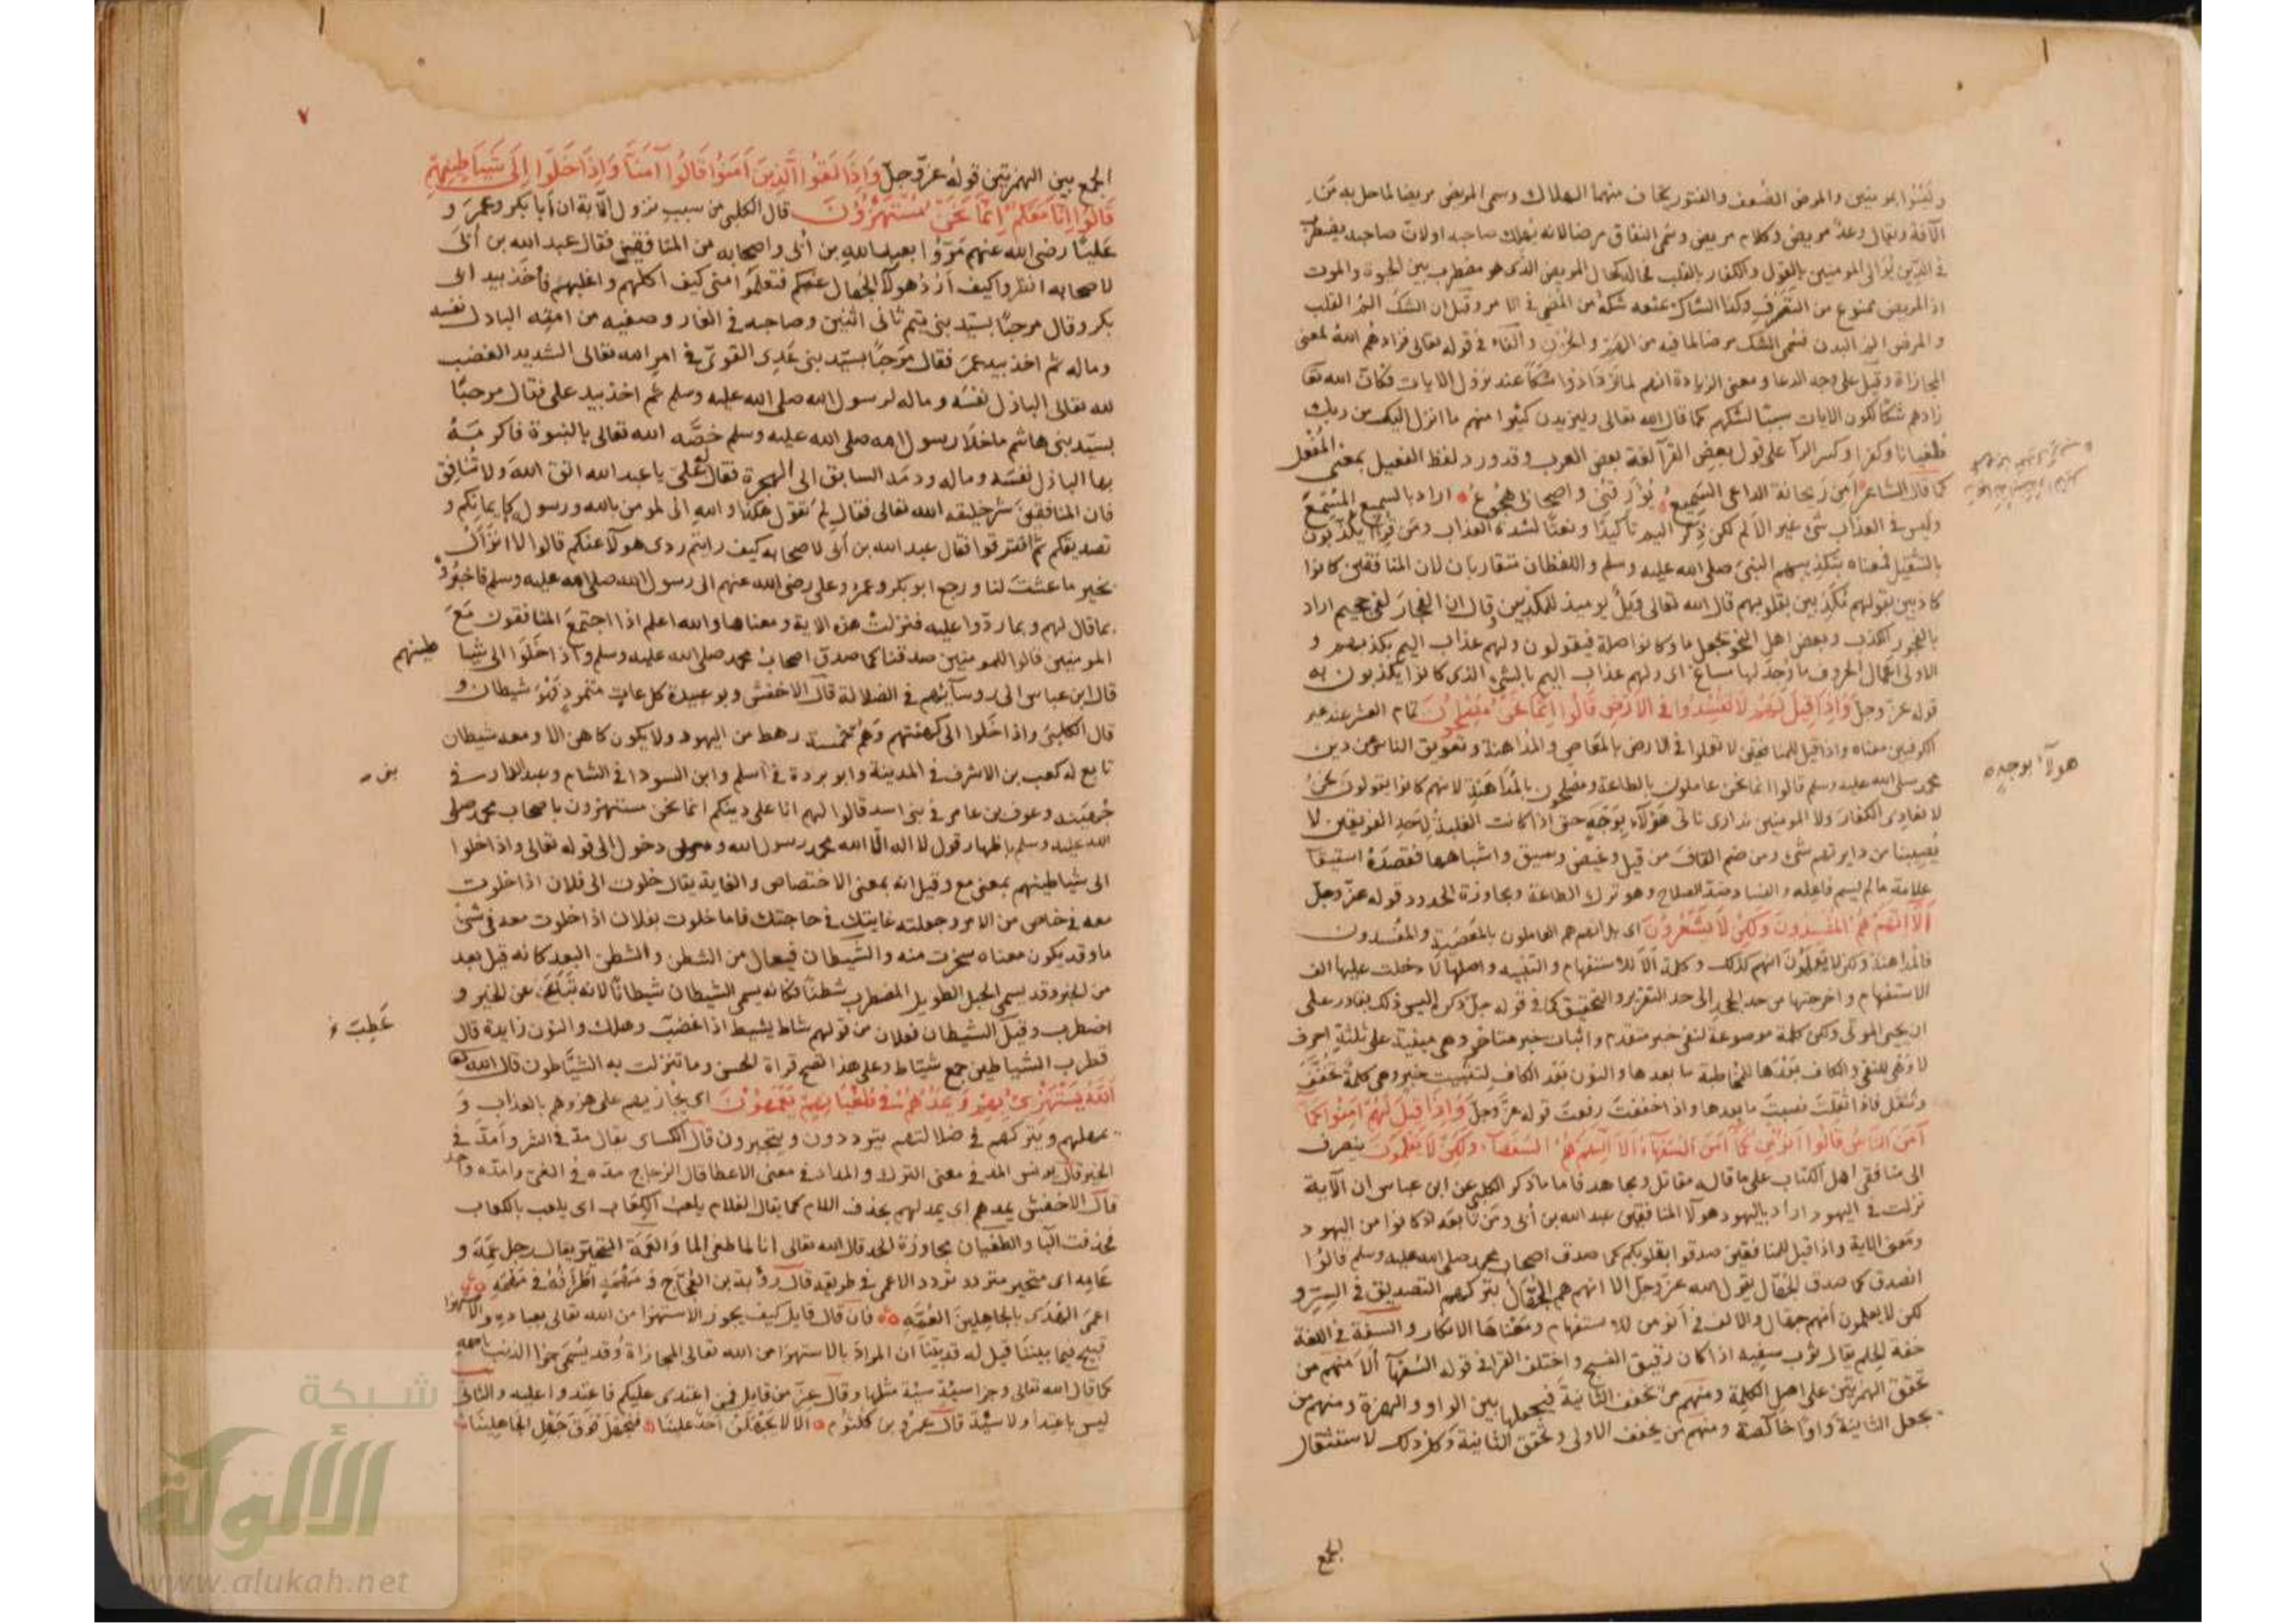 وليسوا بمومنين والمرض الضعف والفتور يخاف منهما الهلاك وسمى المريض مريضا لما حل به من
الآفة ويقال وعد مريض وكلام مريض وسمى النفاق مرضا لانه يهلك صاحبه اولان صاحبه يضطرب
في الدين يوالى المومنين بالقول والكفار بالقلب فحاله كحال المريض الذي هو مضطرب بين الحيوة والموت
اذ المريض ممنوع من التصرف وكذا الشاك يمنعه شكه من المضي في الامر وقيل ان الشك الم القلب
والمرض الم البدن فسمى الشك مرضا لما فيه من الهم والحزن والفاء في قوله تعالى فزادهم الله لمعنى
المجازاة وقيل على وجه الدعا ومعنى الزيادة انهم لما ازدادوا شكا عند نزول الايات فكان الله تعا
زادهم شكا لكون الايات سببا لشكهم كما قال الله تعالى وليزيدن كثيرا منهم ما انزل اليك من ربك
طغيانا وكفرا وكسر الزا على قول بعض القرآ لغة بعض العرب وقد ورد لفظ الفعيل بمعنى المفعل
كما قال الشاعر امن ريحانة الداعى السميع يؤرقنى واصحابى هجوع اراد بالسميع المسمع
وليس في العذاب شئ غير الالم لكن ذكر اليم تاكيدا ونعتا لشدة العذاب ومن قرأ يكذبون
بالتثقيل فمعناه بتكذيبهم النبى صلى الله عليه وسلم واللفظان متقاربان لان المنافقين كانوا
كاذبين بقولهم مكذبين بقلوبهم قال الله تعالى ويل يوميذ للمكذبين وقال ان الفجار لفى جحيم اراد
بالفجور الكذب وبعض اهل النحو تجعل ما وكانوا صلة فيقولون ولهم عذاب اليم بكذبهم و
الاولى اعمال الحروف ما وجد لها مساغ اى ولهم عذاب اليم بالشئ الذى كانوا يكذبون به
قوله عز وجل وَإِذَا قِيلَ لَهُمْ لَا تُفْسِدُوا فِى الْأَرْضِ قَالُوا إِنَّمَا نَحْنُ مُصْلِحُونَ تمام العشر عند غير
الكوفيين معناه واذا قيل للمنافقين لا تعملوا في الارض بالمعاصى والمداهنة وتعويق الناس عن دين
محمد صلى الله عليه وسلم قالوا انما نحن عاملون بالطاعة ومصلحون بالمداهنة لانهم كانوا يقولون نحن
لا نعادى الكفار ولا المومنين نداري ناتى هؤلاء بوجه حتى اذا كانت الغلبة لاحد الفريقين لا
يصيبنا من دايرتهم شئ ومن ضم القاف من قيل وغيض وسيق واشباهها فقصده استبقا
علامة ما لم يسم فاعله والفساد ضد الصلاح وهو ترك الطاعة ومجاوزة الحدود قوله عز وجل
أَلَا إِنَّهُمْ هُمُ الْمُفْسِدُونَ وَلَكِنْ لَا يَشْعُرُونَ اى بل انهم هم العاملون بالمعصية والمفسدون
بالمداهنة ولكن لا يعلمون انهم كذلك وكلمة ألا للاستفهام والتنبيه واصلها لا دخلت عليها الف
الاستفهام واخرجتها من حد الجحد الى حد التقرير والتحقيق كما في قوله جل ذكره اليس ذلك بقادر على
ان يحيى الموتى ولكن كلمة موضوعة لنفى خبر متقدم واثبات خبر متاخر وهى مبنية على ثلثة احرف
لا وهى للنفى والكاف بعدها للمخاطبة ما بعدها والنون بعد الكاف لتثبيت خبر وهى كلمة تخفف
وتثقل فاذا ثقلت نصبت ما بعدها واذا خففت رفعت قوله عز وجل وَإِذَا قِيلَ لَهُمْ آمِنُوا كَمَا
آمَنَ النَّاسُ قَالُوا أَنُؤْمِنُ كَمَا آمَنَ السُّفَهَاءُ أَلَا إِنَّهُمْ هُمُ السُّفَهَاءُ وَلَكِنْ لَا يَعْلَمُونَ ينصرف
الى منافقى اهل الكتاب على ما قاله مقاتل ومجاهد فاما ما ذكر الكلبى عن ابن عباس ان الآية
نزلت في اليهود اراد باليهود هولآ المنافقين عبد الله بن أبى ومن تابعه اذ كانوا من اليهود
ومعنى الاية واذا قيل للمنافقين صدقوا بقلوبكم كما صدق اصحاب محمد صلى الله عليه وسلم قالوا
انصدق كما صدق الجهال يقول الله عز وجل الا انهم هم الجهال بتركهم التصديق في السر و
لكن لا يعلمون أنهم جهال والالف في أنؤمن للاستفهام ومعناها الانكار والسفه في اللغة
خفة الحلم يقال ثوب سفيه اذا كان رقيق النسج واختلف القراء في قوله السفهآ ألا منهم من
تحقق الهمزتين على اصل الكلمة ومنهم من تخفف الثانية فيجعلها بين الواو والهمزة ومنهم من
يجعل الثانية واوا خالصة ومنهم من يخفف الاولى ويحقق الثانية وكل ذلك لاستثقال
هولآ بوجه
الجمع
٧
الجمع بين الهمزتين قوله عز وجل وَإِذَا لَقُوا الَّذِينَ آمَنُوا قَالُوا آمَنَّا وَإِذَا خَلَوْا إِلَى شَيَاطِينِهِمْ
قَالُوا إِنَّا مَعَكُمْ إِنَّمَا نَحْنُ مُسْتَهْزِؤُنَ قال الكلبى من سبب نزول الآية ان أبا بكر وعمر و
عليا رضى الله عنهم مروا بعبد الله بن أبى واصحابه من المنافقين فقال عبد الله بن أبى
لاصحابه انظروا كيف أرد هولآ الجهال عنكم فتعلموا منى كيف اكلمهم واغلبهم فأخذ بيد ابى
بكر وقال مرحبا بسيد بنى تيم ثانى اثنين وصاحبه في الغار وصفيه من امته الباذل نفسه
وماله ثم اخذ بيد عمر فقال مرحبا بسيد بنى عدى القوى في امر الله تعالى الشديد الغضب
لله تعالى الباذل نفسه وماله لرسول الله صلى الله عليه وسلم ثم اخذ بيد على فقال مرحبا
بسيد بنى هاشم ماخلا رسول الله صلى الله عليه وسلم خصه الله تعالى بالنبوة فاكرمه
بها الباذل نفسه وماله ودمه السابق الى الهجرة فقال على يا عبد الله اتق الله ولا تنافق
فان المنافقين شر خليقه الله تعالى فقال لم تقول هكذا والله انى لمومن بالله ورسوله كايمانكم و
تصديقكم ثم افترقوا فقال عبد الله بن أبى لاصحابه كيف رايتم ردى هولآ عنكم قالوا لا نزال
بخير ما عشت لنا ورجع ابو بكر وعمر وعلى رضى الله عنهم الى رسول الله صلى الله عليه وسلم فاخبروه
بما قال لهم وبما ردوا عليه فنزلت هذه الاية ومعناها والله اعلم اذا اجتمع المنافقون مع
المومنين قالوا للمومنين صدقنا كما صدق اصحاب محمد صلى الله عليه وسلم واذا خلوا الى شيا طينهم
قال ابن عباس الى روسآئهم في الضلالة قال الاخفش وبو عبيدة كل عات متمرد فهو شيطان و
قال الكلبى واذا خلوا الى كهنتهم وهم خمسة رهط من اليهود ولا يكون كاهن الا ومعه شيطان
تابع له كعب بن الاشرف في المدينة وابو بردة في اسلم وابن السودا في الشام وعبد الدار في
بنى
جهينه وعوف بن عامر في بنى اسد قالوا لهم انا على دينكم انما نحن مستهزون باصحاب محمد صلى
الله عليه وسلم بإظهار قول لا اله الا الله محمد رسول الله و دخول الى في قوله تعالى واذا خلوا
الى شياطينهم بمعنى مع وقيل انه بمعنى الاختصاص والغاية يقال خلوت الى فلان اذا خلوت
معه في خاص من الامر وجعلته غايتك في حاجتك فاما خلوت بفلان اذا خلوت معه في شئ
ما وقد يكون معناه سخرت منه والشيطان فيعال من الشطن والشطن البعد كانه قيل بعد
من الخير وقد يسمى الحبل الطويل المضطرب شطنا فكانه يسمى الشيطان شيطانا لانه تباعد عن الخير و
اضطرب وقيل الشيطان فعلان من قولهم شاط يشيط اذا غضب وهلك والنون زايدة قال
قطرب الشياطين جمع شياط وعلى هذا تصح قراة الحسن وما تنزلت به الشياطون قال الله تعا
اللَّهُ يَسْتَهْزِئُ بِهِمْ وَيَمُدُّهُمْ فِى طُغْيَانِهِمْ يَعْمَهُونَ اى يجازيهم على هزوهم بالعذاب و
يمهلهم ويتركهم في ضلالتهم يترددون ويتحيرون قال الكساى يقال مد في الشر وأمد في
الخير وقال يونس المد في معنى الترك والامداد في معنى الاعطا قال الزجاج مده في الغى وامده واحد
قال الاخفش يمدهم اى يمد لهم بحذف اللام كما يقال الغلام يلعب الكعاب اى يلعب بالكعاب
فحذفت البآ والطغيان مجاوزة الحد قال الله تعالى انا لما طغى الما والعمه التحير يقال رجل عمه و
عامه اى متحير متردد تردد الاعمى في طريقه قال رؤبة بن العجاج ومهمه أطرافه في مهمه
اعمى الهدى بالجاهلين العمه فان قال قايل كيف يجوز الاستهزا من الله تعالى بعباده والاستهزا
قبيح فيما بيننا قيل له قد بينا ان المراد بالاستهزا من الله تعالى المجازاة وقد يسمى جزا الذنب باسمه
كما قال الله تعالى وجزا سيئة سيئة مثلها وقال عز من قايل فمن اعتدى عليكم فاعتدوا عليه والثانى
ليس باعتدا ولا سيئة قال عمرو بن كلثوم الا لا يجهلن احد علينا فنجهل فوق جهل الجاهلينا
شبكة
الألوكة
www.alukah.net